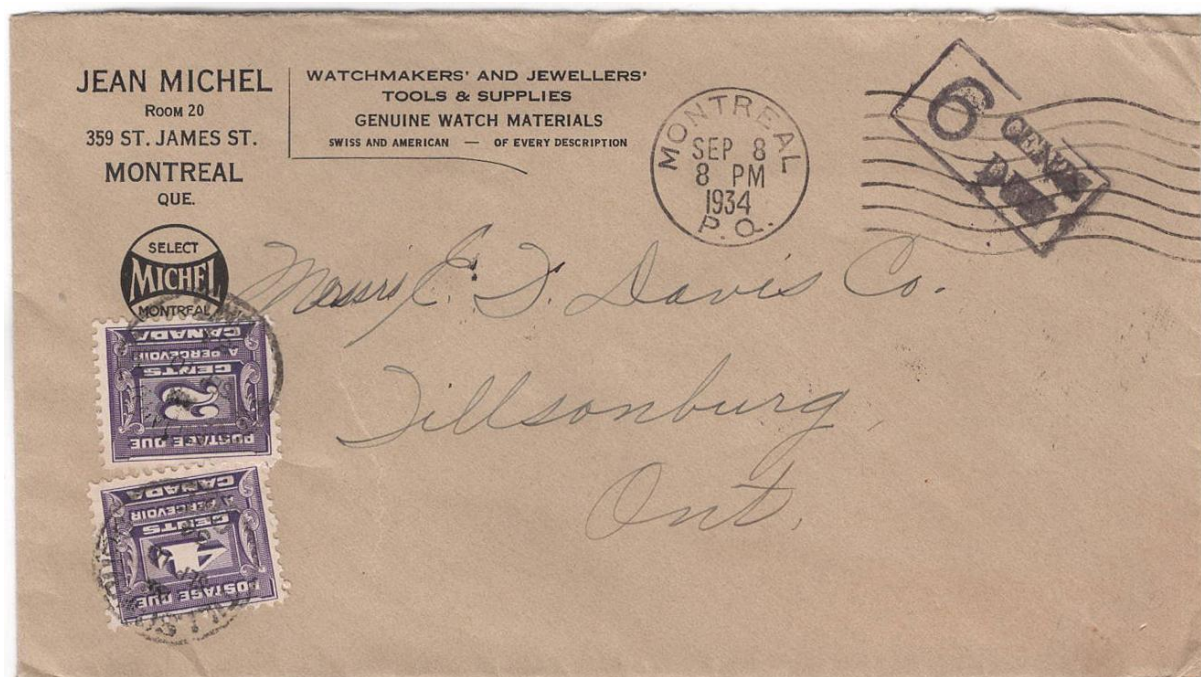 JEAN MICHEL
ROOM 20
359 ST. JAMES ST.
MONTREAL
QUE.
WATCHMAKERS' AND JEWELLERS'
TOOLS & SUPPLIES
GENUINE WATCH MATERIALS
SWISS AND AMERICAN — OF EVERY DESCRIPTION
MONTREAL
SEP 8
8 PM
1934
P.Q.
6 CENTS
DUE
SELECT
MICHEL
MONTREAL
Messrs C. T. Davis Co.
Tillsonburg,
Ont.
CANADA
A PERCEVOIR
CENTS
2
POSTAGE DUE
CANADA
A PERCEVOIR
CENTS
4
POSTAGE DUE